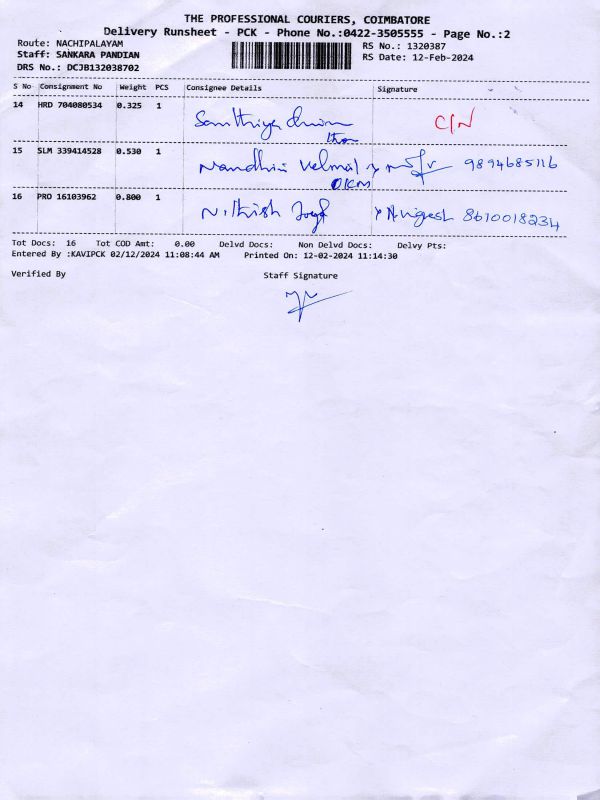 THE PROFESSIONAL COURIERS, COIMBATORE
Delivery Runsheet - PCK - Phone No.:0422-3505555 - Page No.:2
Route: NACHIPALAYAM
RS No.: 1320387
Staff: SANKARA PANDIAN
RS Date: 12-Feb-2024
DRS No.: DCJB132038702
S No Consignment No Weight PCS Consignee Details Signature
14 HRD 704080534 0.325 1
C/N
15 SLM 339414528 0.530 1 Nandhini Velmal 9894685116
16 PRO 16103962 0.800 1 Nithish 8610018234
Tot Docs: 16 Tot COD Amt: 0.00 Delvd Docs: Non Delvd Docs: Delvy Pts:
Entered By :KAVIPCK 02/12/2024 11:08:44 AM Printed On: 12-02-2024 11:14:30
Verified By Staff Signature